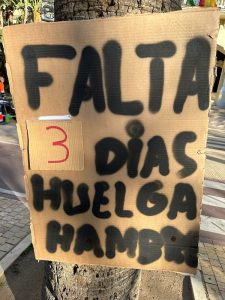 FALTA
3 DIAS
HUELGA
HAMBRE